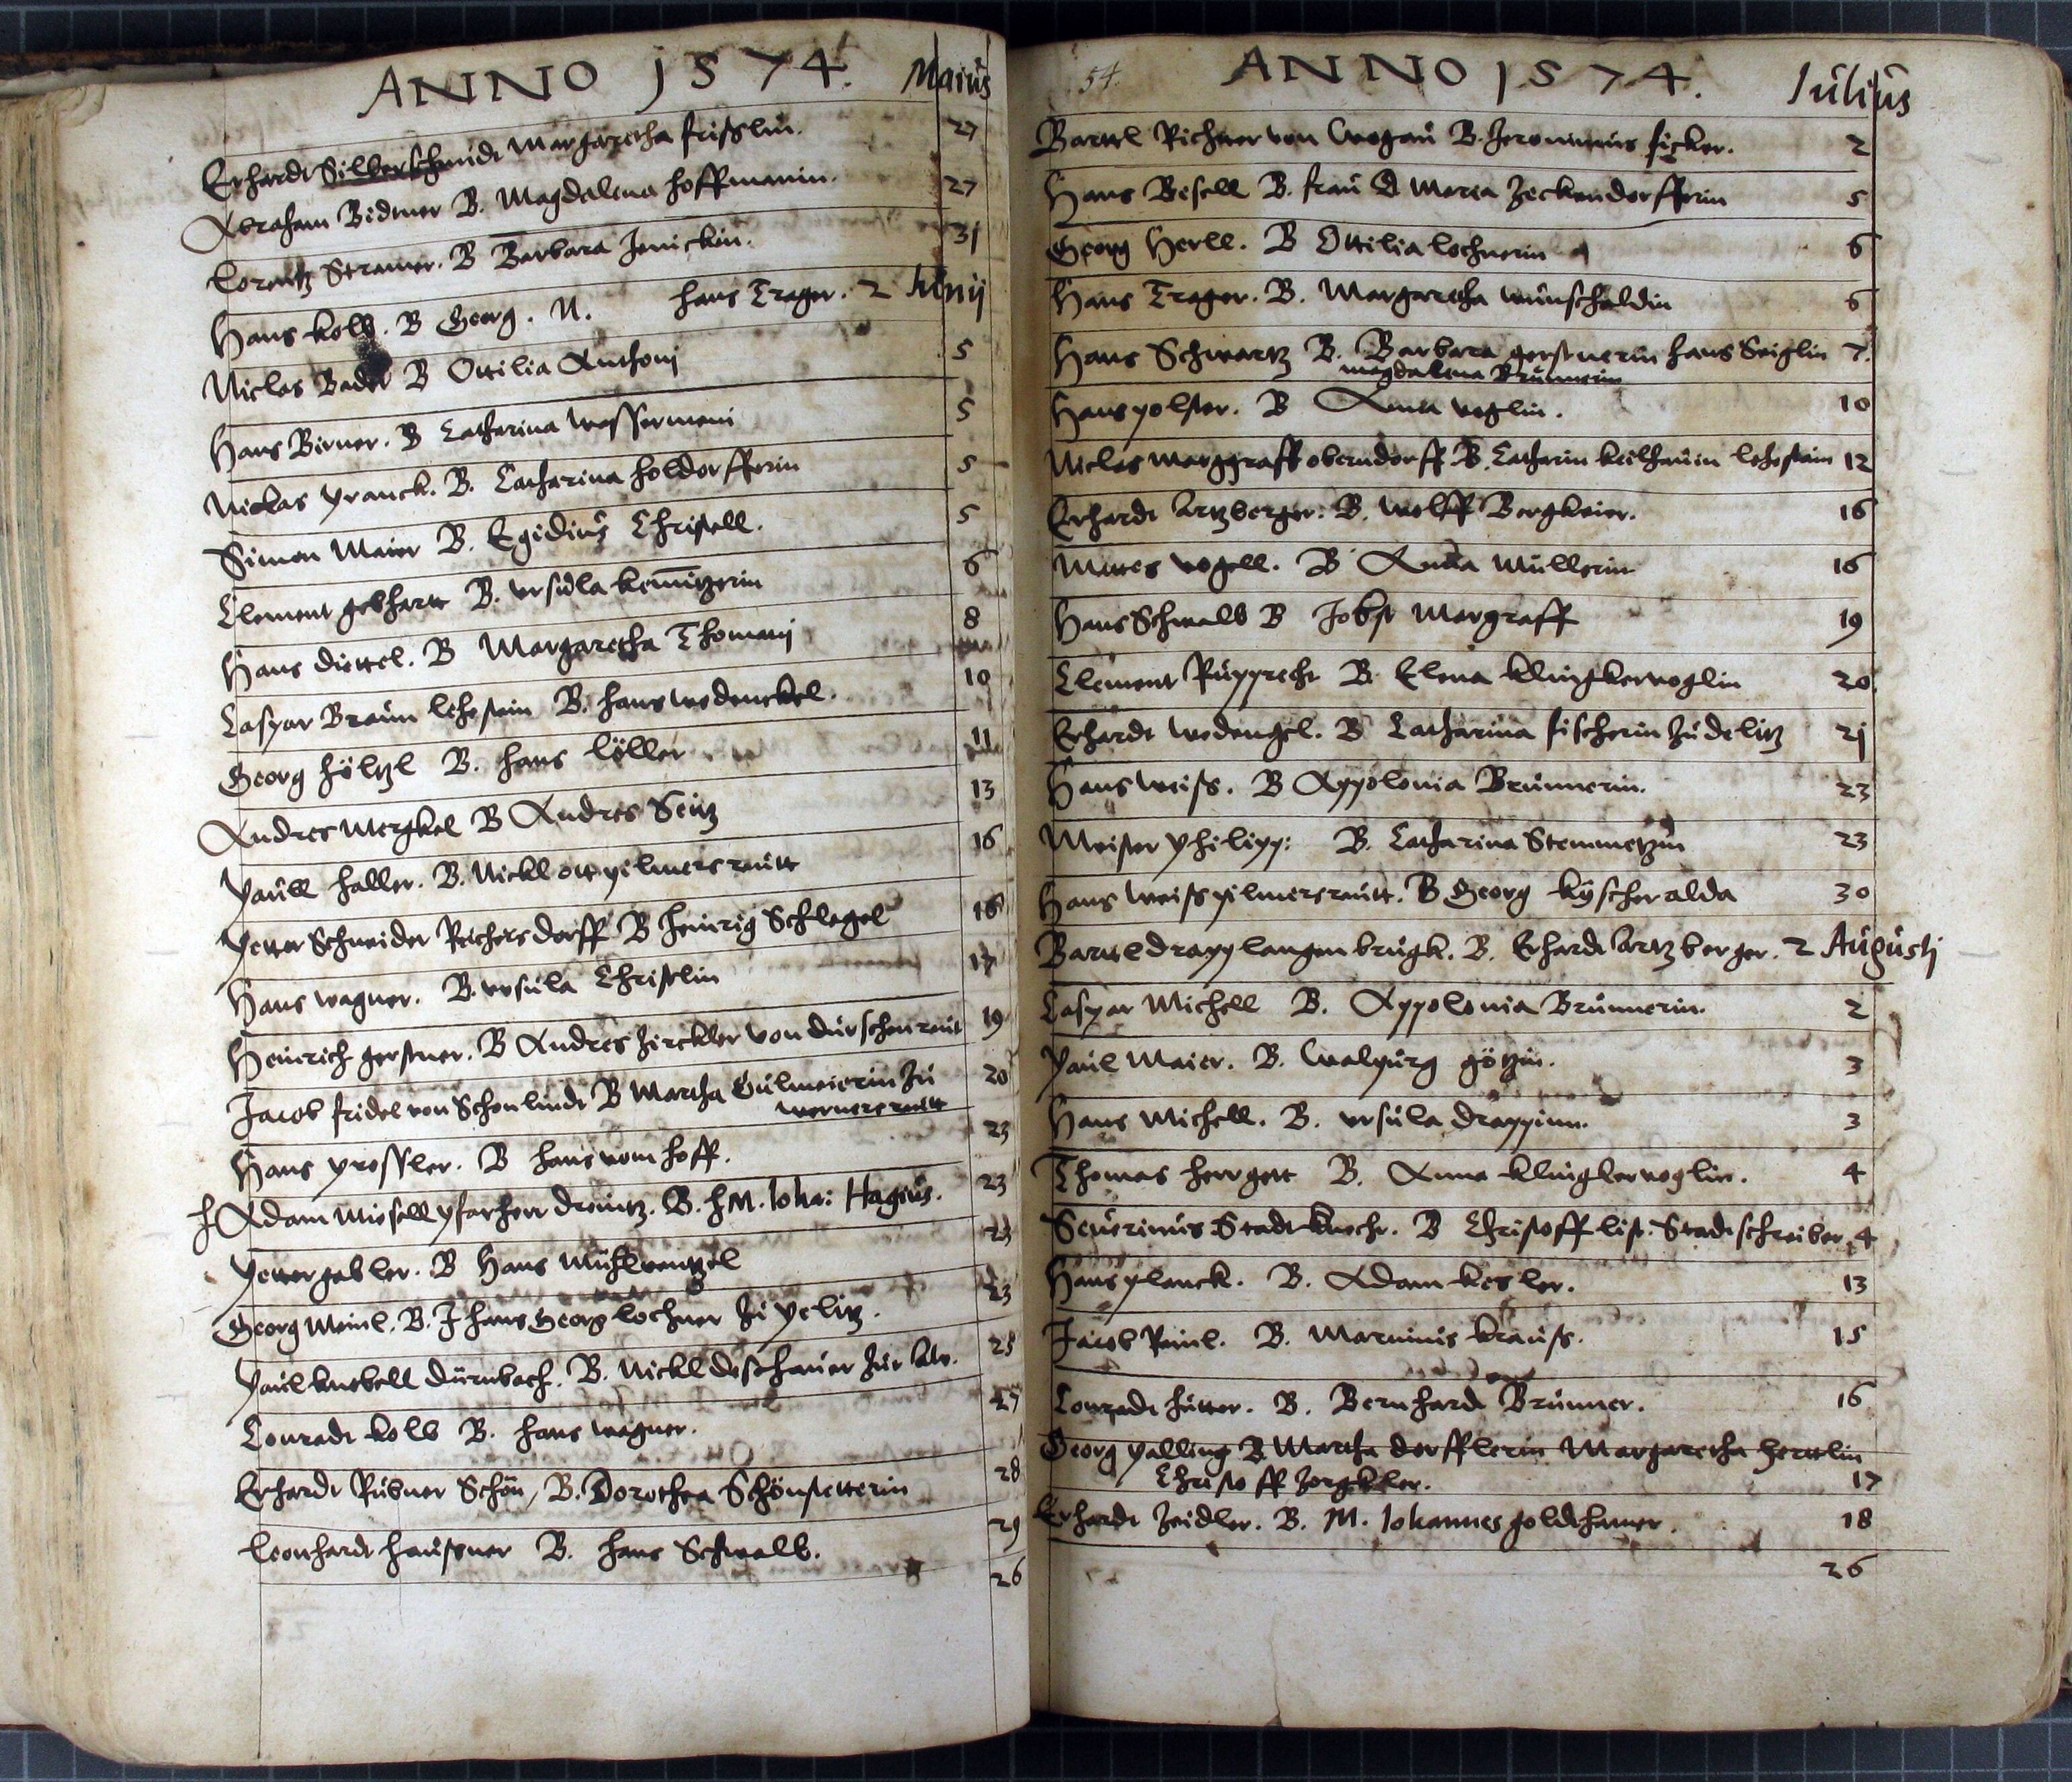 ANNO 1574. Maius
Erhardt Silberschmidt Margaretha frislin. 27
Abraham Bidmer B. Magdalena hoffmanin. 27
Lorentz Stramer. B Barbara Jenickin. 31
Hans kolb. B Georg. N. Hans Trager. 2 Junij
Niclas Bader B Ottilia Anthonj 5
Hans Birner. B Catharina wassermeni 5
Nicklas pranck. B. Catharina holdorfferin 5
Simon Maier B. Egidius Christell. 5
Clement gebhartt B. ursula kemnitzerin 6
Hans diettel. B Margaretha Thomanj 8
Caspar Braun lehestain B. hans wedenckel. 10
Georg höltzl B. hans löller 11
Andres Mergkel B Andres Seitz 13
Paull haller. B. Nickl ott pilmersreutt 16
Petter Schneider Reichersdorff B Heinrig Schlegel 16
Hans wagner. B. ursula Christlin 17
Heinrich gerstner. B Andres Zirckler von dürschenreut 19
Jacob fridel von Schonlindt B Martha Gulmeierin Zu 20
wernersreutt
Hans prossler. B hans vom hoff. 23
H Adam Miesell pfarherr dreintz. B. H M. Joha: Hagius. 23
Petter gabler. B Hans Mühlwentzel 23
Georg Meinl. B. J hans Georg lochner Zu pelitz. 23
Paul kutbell dürnbach. B. Nickl deschauer Zur 25
Conradt kolb B. hans wagner. 27
Erhardt Rubner Schön, B. Dorothea Schönstetterin 28
Leonhardt haussner B. hans Schwalb. 29
26
54. ANNO 1574. Julius
Barttl Richner von Wogau B. Jeronimus ficker. 2
Hans Besell B. frau Maria Zeckendorfferin 5
Georg Herll. B Ottilia lochnerin 6
Hans Trager. B. Margaretha wunschaldin 6
Hans Schwartz B. Barbara gerstnerin hans Seiglin 7.
magdalena Brunnerin
Hans polster. B Anna voglin. 10
Niclas marggraff oberndorff B. Catharin keilhauin lehestain 12
Erhardt Artzberger. B. Wolff Bergkaier. 16
Mattes vogell. B Anna Müllerin 16
Hans Schwalb B Jobst Margraff 19
Clement Rupprecht B. Elena klingkervoglin 20
Erhardt wedengel. B Catharina fischerin Zu delitz 21
Hans weiss. B Appolonia Brunnerin. 23
Meister philipp: B. Catharina Stenmetzin 23
Hans weiss pilmersreutt. B Georg kÿscheralda 30
Barttl drapp langenbrugk. B. Erhardt Artzberger. 2 Augustj
Caspar Michell B. Appolonia Brunnerin. 2
Paul Maier. B. Walpurg götzin. 3
Hans Michell. B. ursula drappinn. 3
Thomas herrgett B. Anna klingkervoglin. 4
Severinus Stadtknecht. B Christoff list. Stadtschreiber, 4
Hans planck. B. Adam kesler. 13
Jacob Reinl. B. Martinus krauss. 15
Conradt hutter. B. Bernhardt Brunner. 16
Georg palling B Martha dorfflerin Margaretha herttlin
Christoff Zergkler. 17
Erhardt Zeidler. B. M. Johannes goldthamer. 18
26